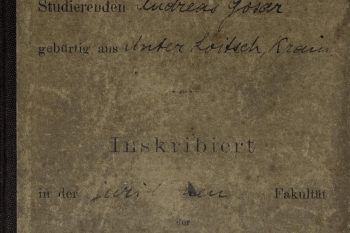 Studierenden Andreas Gosar
gebürtig aus Unter Loitsch Krain
Inskribiert
in der Fakultät
der